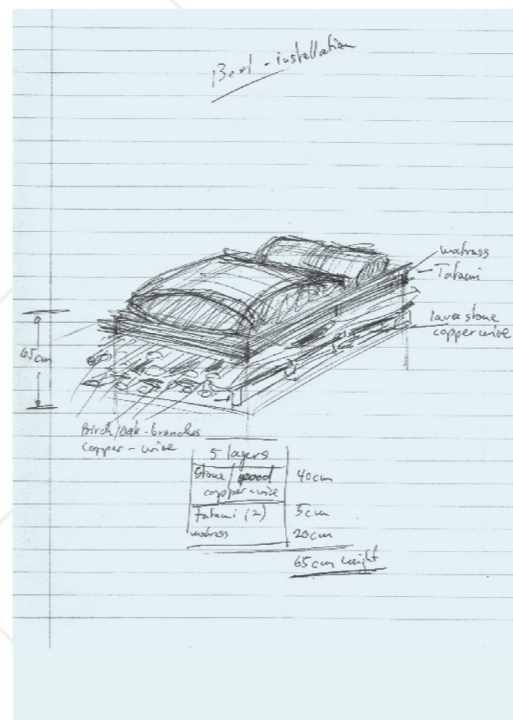 Bed - installation
matrass
Tatami
lava stone
copperwire
65cm
Birch/oak-branches
copper-wire
5 layers
Stone/good 40cm
copper-wire
Tatami (2) 5cm
matrass 20cm
65cm height